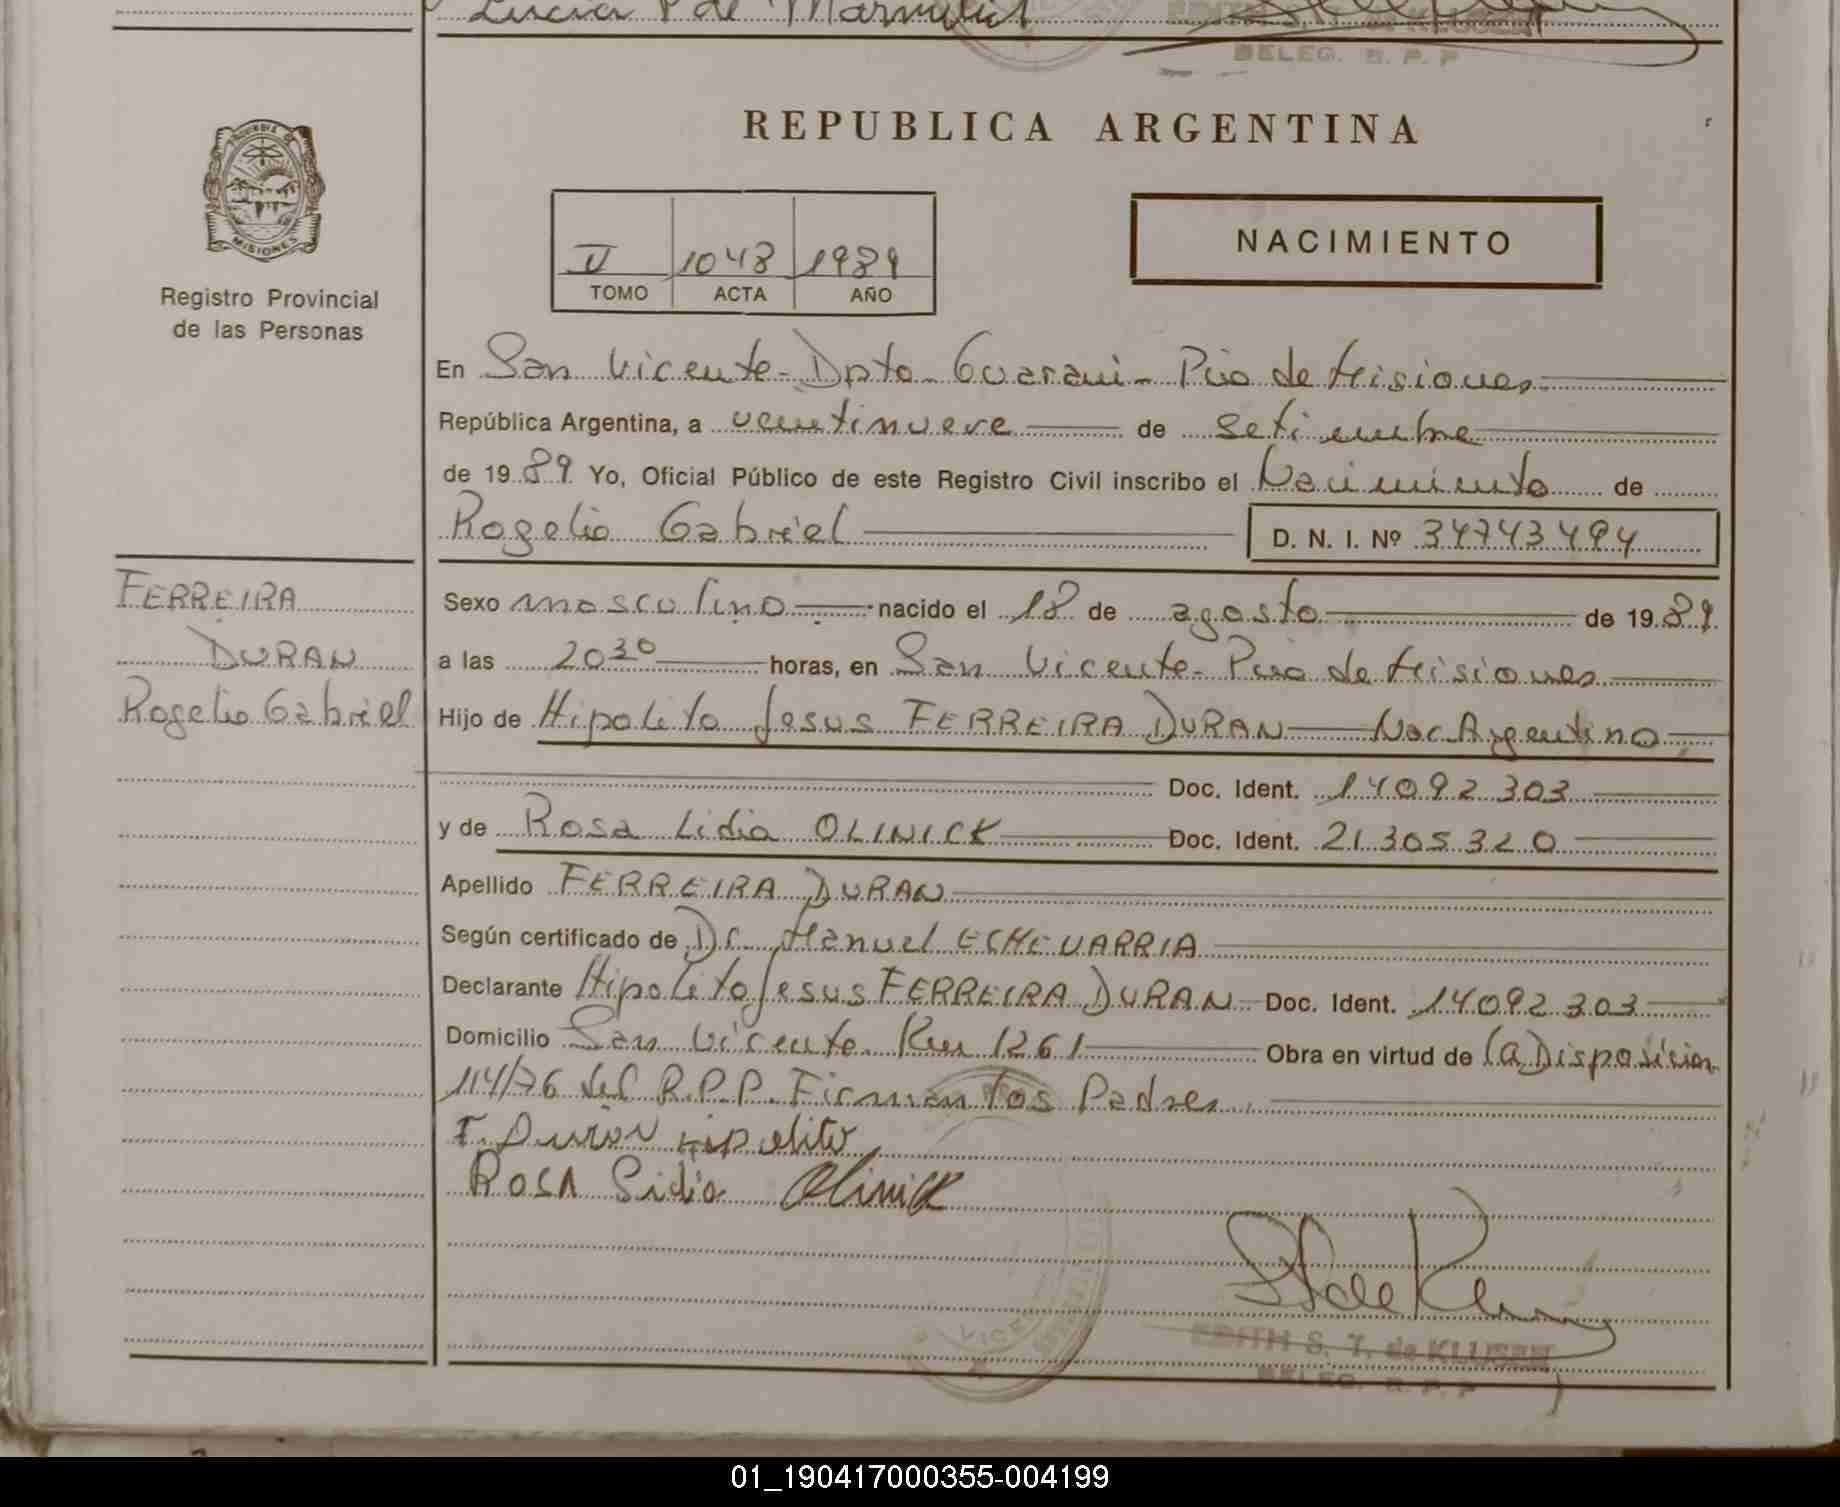 Lucia P de
EDITH S. T. de KLUSEN
DELEG. R. P. P
REPUBLICA ARGENTINA
PROVINCIA DE
MISIONES
Registro Provincial
de las Personas
II 1048 1989
TOMO ACTA AÑO
NACIMIENTO
En San Vicente - Dpto. Guarani - Pcia de Misiones
República Argentina, a veintinueve de setiembre
de 1989 Yo, Oficial Público de este Registro Civil inscribo el Nacimiento de
Rogelio Gabriel D. N. I. Nº 34743494
FERREIRA
DURAN
Rogelio Gabriel
Sexo masculino nacido el 18 de agosto de 1989
a las 20 30 horas, en San Vicente - Pcia de Misiones
Hijo de Hipolito Jesus FERREIRA DURAN Nac. Argentino,
Doc. Ident. 14092303
y de Rosa Lidia OLINICK Doc. Ident. 21.305.320
Apellido FERREIRA DURAN
Según certificado de Dr. Manuel ECHEVARRIA
Declarante Hipolito Jesus FERREIRA DURAN Doc. Ident. 14092303
Domicilio San Vicente Km 1261 Obra en virtud de la Disposicion
114/76 del R.P.P. Firman los Padres.
F. Duran Hipolito
ROSA Lidia Olinick
EDITH S. T. de KLUSEN
DELEG. R. P. P
01_190417000355-004199